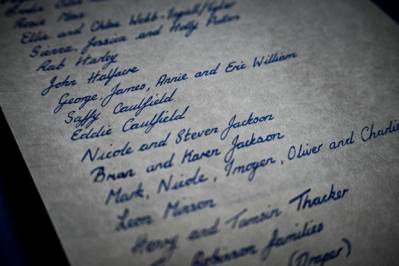 Ellie and Chloe Webb-
Sienna, Jessica and Holly
Rab Harley
John Halfacre
George, James, Annie and Eric William
Saffy Caulfield
Eddie Caulfield
Nicole and Steven Jackson
Brian and Karen Jackson
Mark, Nicole, Imogen, Oliver and Charlie
Leon Mirson
Henry and Tamsin Thacker
Robinson families
(Draper)